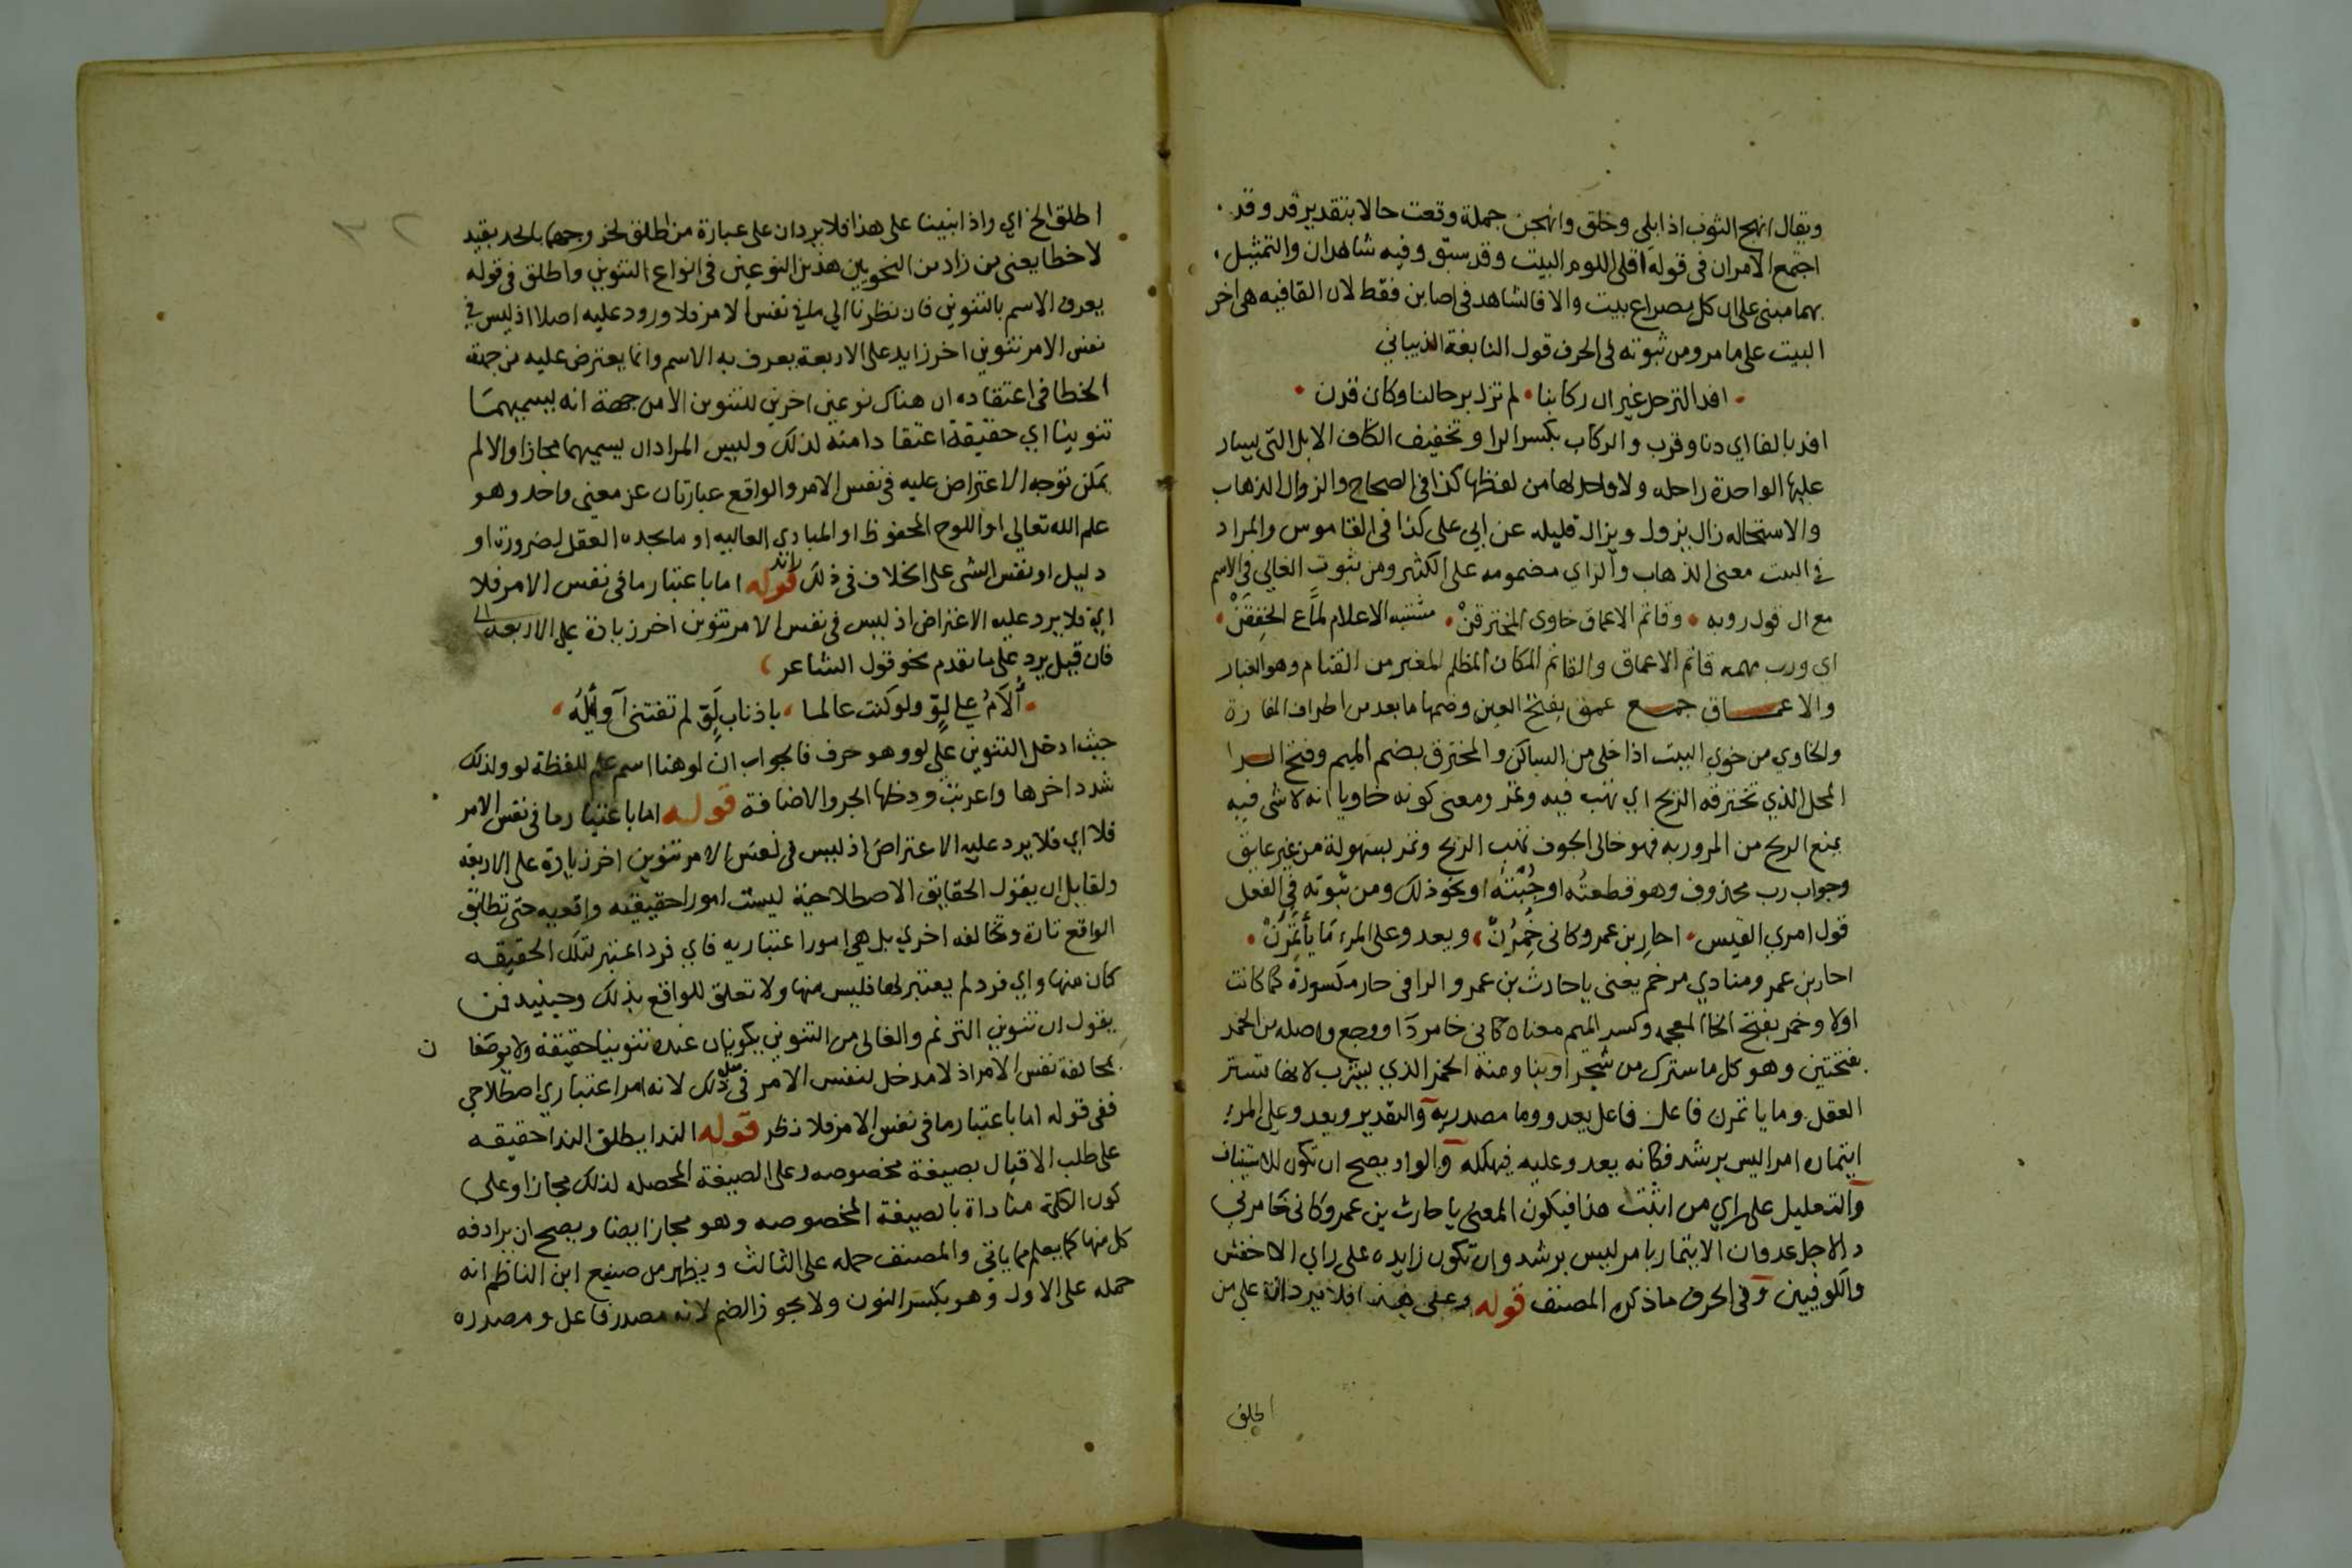 ويقال انهج الثوب اذا بلى وخلق وانهجن جملة وقعت حالا بتقدير قد وقد
اجتمع الامران في قوله اقلى اللوم البيت وقد سبق وفيه شاهدان والتمثيل
بهما مبنى على ان كل مصراع بيت والا فالشاهد في اصابن فقط لان القافيه هي اخر
البيت على ما مر ومن ثبوته في الحرف قول النابغة الذيباني
افد الترحل غير ان ركابنا لم تزل برحالنا وكان قدن
افد بالفا اي دنا وقرب والركاب بكسر الرا وتخفيف الكاف الابل التى يسار
عليها الواحدة راحله ولا واحد لها من لفظها كذا في الصحاح والزوال الذهاب
والاستحاله زال يزول ويزال قليله عن ابي على كذا في القاموس والمراد
في البيت معنى الذهاب والزاي مضمومه على الكثير ومن ثبوت الغالي في الاسم
مع ال قول روبه وقاتم الاعماق خاوى المخترقن مشتبه الاعلام لماع الخفقن
اي ورب مهمه قاتم الاعماق والقاتم المكان المظلم المغبر من القتام وهو الغبار
والاعماق جمع عمق بفتح العين وضمها ما بعد من اطراف المفازة
والخاوي من خوي البيت اذا خلى من الساكن والمخترق بضم الميم وفتح الرا
المحل الذي تخترقه الريح اي تهب فيه وتمر ومعنى كونه خاويا انه لا شى فيه
يمنع الريح من المرور به فهو خالى الجوف تهب الريح وتمر بسهولة من غير عايق
وجواب رب محذوف وهو قطعته او جبته او نحو ذلك ومن ثبوته في الفعل
قول امري القيس احار بن عمرو كانى خمرن ويعدو على المرء ما يأتمرن
احار بن عمرو منادي مرخم يعنى يا حارث بن عمرو والرا في حار مكسورة كما كانت
اولا وخمر بفتح الخا المعجمه وكسر الميم معناه كانى خامر دآ او وجع واصله من الخمر
بفتحتين وهو كل ما سترك من شجر او بنا ومنه الخمر الذي يشرب لانها تستر
العقل وما ياتمرن فاعل فاعل يعدو وما مصدريه والتقدير ويعدو على المرء
ايتماره امرا ليس برشد فكانه يعدو عليه فيهلكه والواو يصح ان تكون للاستيناف
والتعليل على راي من اثبت هذا فيكون المعنى يا حارث بن عمرو كانى خامرني
دا لاجل عدوان الايتمار بامر ليس برشد وان تكون زايده على راي الاخفش
والكوفيين وفي الحرف ما ذكره المصنف قوله وعلى هذا فلا يردان على من
اطلق
اطلق الخ اي واذا بنينا على هذا فلا يردان على عبارة من اطلق لخروجهما بالحد بقيد
لا خطا يعنى من زاد من النحويين هذين النوعين في انواع التنوين واطلق في قوله
يعرف الاسم بالتنوين فان نظرنا الي ما في نفس الامر فلا ورود عليه اصلا اذ ليس في
نفس الامر تنوين اخر زايد على الاربعة يعرف به الاسم وانما يعترض عليه من جهة
الخطا في اعتقاده ان هناك نوعين اخرين للتنوين الا من جهة انه يسميهما
تنوينا اي حقيقة اعتقادا منه لذلك وليس المراد ان يسميهما مجازا والا لم
يمكن توجه الاعتراض عليه في نفس الامر والواقع عبارتان عن معنى واحد وهو
علم الله تعالى او اللوح المحفوظ او المبادي العاليه او ما يجده العقل لضرورة او
دليل او نفس الشى على الخلاف في ذلك قوله اما باعتبار ما في نفس الامر فلا
اي فلا يرد عليه الاعتراض اذ ليس في نفس الامر تنوين اخر زيادة على الاربعة
فان قيل يرد على ما تقدم نحو قول الشاعر
ألام على لو ولو كنت عالما باذناب لو لم تفتنى آوايله
حيث ادخل التنوين على لو وهو حرف فالجواب ان لو هنا اسم علم للفظة لو ولذلك
شدد اخرها واعربت ودخلها الجر والاضافة قوله اما باعتبار ما في نفس الامر
فلا اي فلا يرد عليه الاعتراض اذ ليس في نفس الامر تنوين اخر زيادة على الاربعه
ولقايل ان يقول الحقايق الاصطلاحية ليست امورا حقيقيه واقعيه حتى تطابق
الواقع تارة وتخالفه اخري بل هي امورا اعتباريه فاي فرد اعتبر لتلك الحقيقه
كان منها واي فرد لم يعتبر لها فليس منها ولا تعلق للواقع بذلك وحينيد فمن
يقول ان تنوين الترنم والغالى من التنوين يكونان عنده تنوينا حقيقة ولا يوصفا
ن
بمخالفة نفس الامر اذ لا مدخل لنفس الامر في مثل ذلك لانه امر اعتباري اصطلاحي
ففي قوله اما باعتبار ما في نفس الامر فلا نظر قوله الندا يطلق الندا حقيقه
على طلب الاقبال بصيغة مخصوصه وعلى الصيغة المحصله لذلك مجازا وعلى
كون الكلمة مناداة بالصيغة المخصوصه وهو مجاز ايضا ويصح ان يراد فه
كل منها كما يعلم مما ياتي والمصنف حمله على الثالث ويظهر من صنيع ابن الناظم انه
حمله على الاول وهو بكسر النون ولا يجوز الضم لانه مصدر فاعل ومصدره